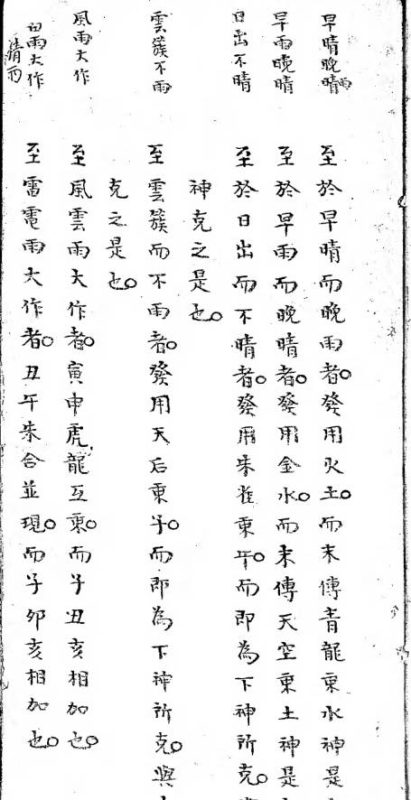 早晴晚晴雨
至於早晴而晚雨者。發用火土。而末傳青龍乘水神是
早雨晚晴
至於早雨而晚晴者。發用金水。而末傳天空乘土神是
日出不晴
至於日出而不晴者。發用朱雀乘午。而即為下神所克。
神克之是也。
雲簇不雨
至雲簇而不雨者。發用天后乘子。而即為下神所克。與
克之是也。
風雨大作
至風雲雨大作者。寅申虎龍互乘。而子丑亥相加也。
雨大作
晴雨
至雷電雨大作者。丑午朱合並現。而子卯亥相加也。